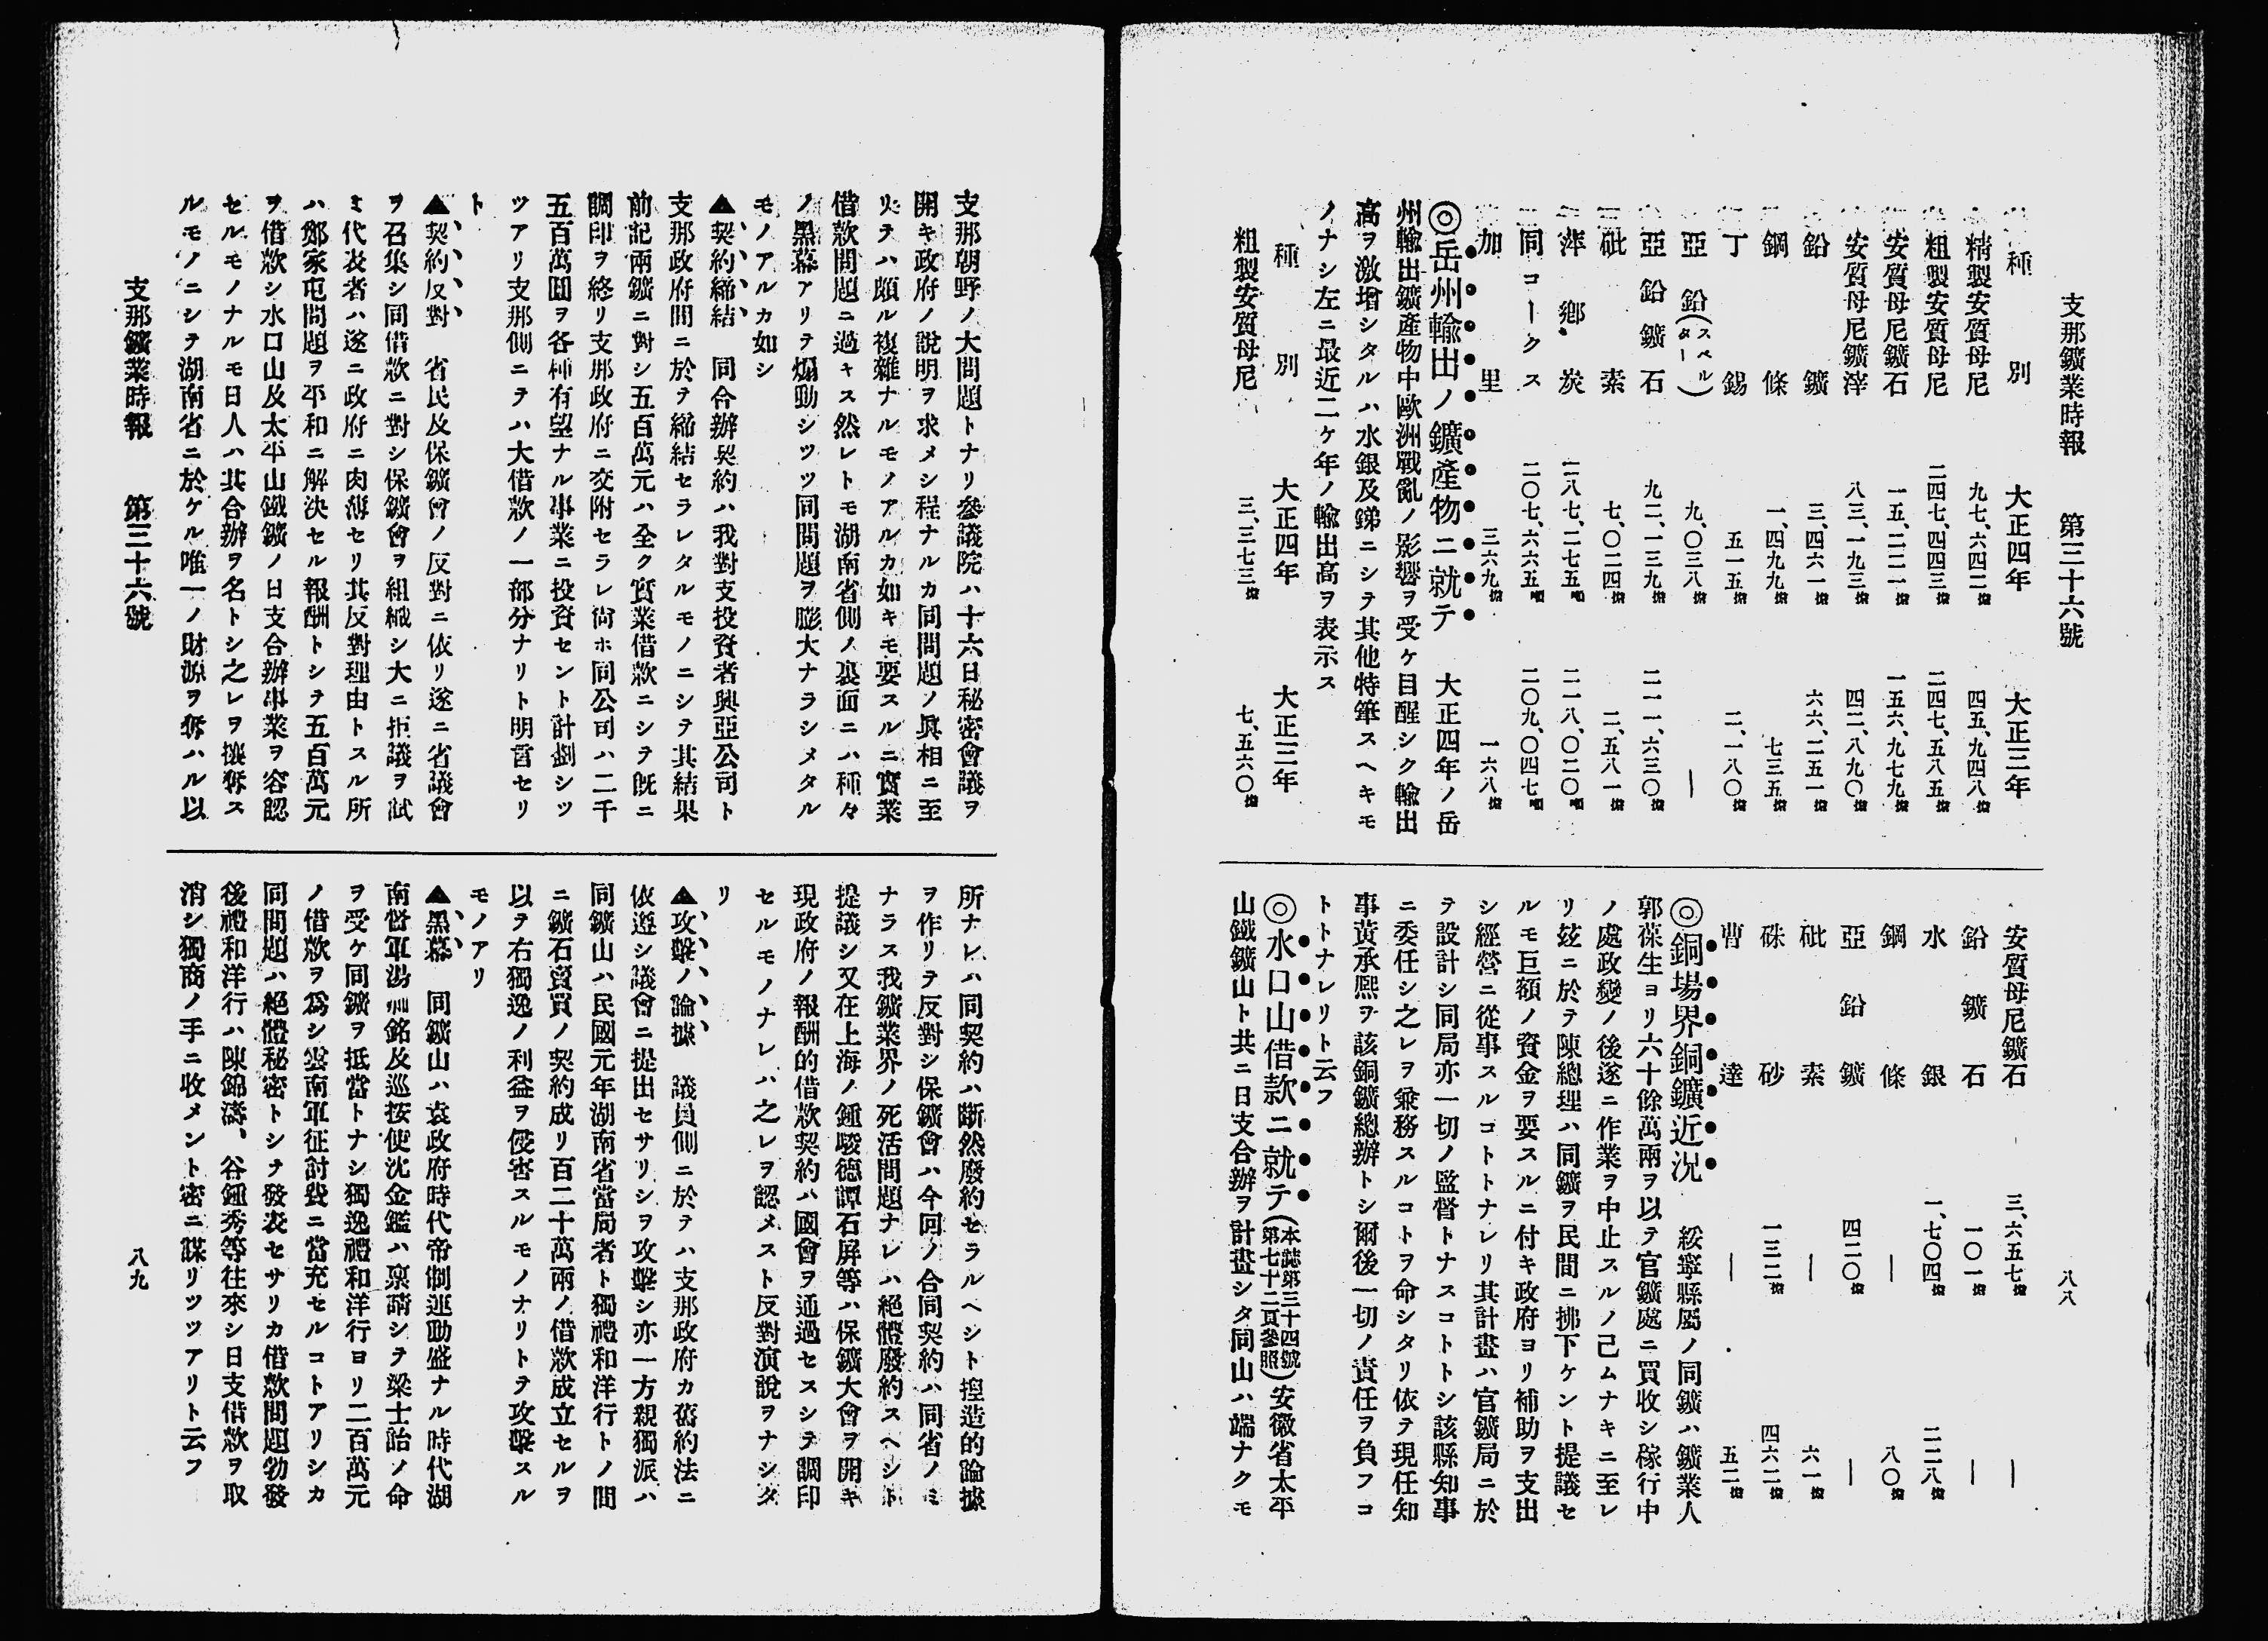 支那鑛業時報　第三十六號　八八
種別　大正四年　大正三年
精製安質母尼　九七、六四二擔　四五、九四八擔
粗製安質母尼　二四七、四四三擔　二四七、五八五擔
安質母尼鑛石　一五、二二一擔　一五六、九七九擔
安質母尼鑛滓　八三、一九三擔　四二、八九〇擔
鉛鑛　三、四六一擔　六六、二五一擔
鋼條　一、四九九擔　七三五擔
丁錫　五一五擔　二、一八〇擔
亞鉛(スペルター)　九、〇三八擔　―
亞鉛鑛石　九二、一三九擔　二一一、六三〇擔
砒素　七、〇二四擔　二、五八一擔
萍鄕炭　二八七、二七五噸　二一八、〇二〇噸
同コークス　二〇七、六六五噸　二〇九、〇四七噸
加里　三六九擔　一六八擔
◎岳州輸出ノ鑛產物ニ就テ　大正四年ノ岳
州輸出鑛產物中歐洲戰亂ノ影響ヲ受ケ目醒シク輸出
高ヲ激增シタルハ水銀及銻ニシテ其他特筆スヘキモ
ノナシ左ニ最近二ケ年ノ輸出高ヲ表示ス
種別　大正四年　大正三年
粗製安質母尼　三、三七三擔　七、五六〇擔
安質母尼鑛石　三、六五七擔　―
鉛鑛石　一〇一擔　―
水銀　一、七〇四擔　二二八擔
鋼條　―　八〇擔
亞鉛鑛　四二〇擔　―
砒素　―　六一擔
硃砂　一三二擔　四六二擔
曹達　―　五二擔
◎銅場界銅鑛近況　綏寧縣屬ノ同鑛ハ鑛業人
郭葆生ヨリ六十餘萬兩ヲ以テ官鑛處ニ買收シ稼行中
ノ處政變ノ後遂ニ作業ヲ中止スルノ已ムナキニ至レ
リ玆ニ於テ陳總理ハ同鑛ヲ民間ニ拂下ケント提議セ
ルモ巨額ノ資金ヲ要スルニ付キ政府ヨリ補助ヲ支出
シ經營ニ從事スルコトトナレリ其計畫ハ官鑛局ニ於
テ設計シ同局亦一切ノ監督トナスコトトシ該縣知事
ニ委任シ之レヲ兼務スルコトヲ命シタリ依テ現任知
事黃承熙ヲ該銅鑛總辦トシ爾後一切ノ責任ヲ負フコ
トトナレリト云フ
◎水口山借款ニ就テ(本誌第三十四號第七十二頁參照)安徽省太平
山鐵鑛山ト共ニ日支合辦ヲ計畫シタ同山ハ端ナクモ
支那朝野ノ大問題トナリ參議院ハ十六日秘密會議ヲ
開キ政府ノ說明ヲ求メシ程ナルカ同問題ノ眞相ニ至
リテハ頗ル複雜ナルモノアルカ如キモ要スルニ實業
借款問題ニ過キス然レトモ湖南省側ノ裏面ニハ種々
ノ黑幕アリテ煽動シツツ同問題ヲ膨大ナラシメタル
モノアルカ如シ
▲契約締結　同合辦契約ハ我對支投資者興亞公司ト
支那政府間ニ於テ締結セラレタルモノニシテ其結果
前記兩鑛ニ對シ五百萬元ハ全ク實業借款ニシテ既ニ
調印ヲ終リ支那政府ニ交附セラレ尙ホ同公司ハ二千
五百萬圓ヲ各種有望ナル事業ニ投資セント計劃シツ
ツアリ支那側ニテハ大借款ノ一部分ナリト明言セリ
ト
▲契約反對　省民及保鑛會ノ反對ニ依リ遂ニ省議會
ヲ召集シ同借款ニ對シ保鑛會ヲ組織シ大ニ拒議ヲ試
ミ代表者ハ遂ニ政府ニ肉薄セリ其反對理由トスル所
ハ鄭家屯問題ヲ平和ニ解決セル報酬トシテ五百萬元
ヲ借款シ水口山及太平山鐵鑛ノ日支合辦事業ヲ容認
セルモノナルモ日人ハ其合辦ヲ名トシ之レヲ攘奪ス
ルモノニシテ湖南省ニ於ケル唯一ノ財源ヲ奪ハル以
所ナレハ同契約ハ斷然廢約セラルヘシト揑造的論據
ヲ作リテ反對シ保鑛會ハ今回ノ合同契約ハ同省ノミ
ナラス我鑛業界ノ死活問題ナレハ絕體廢約スヘシト
提議シ又在上海ノ鍾駿德譚石屛等ハ保鑛大會ヲ開キ
現政府ノ報酬的借款契約ハ國會ヲ通過セスシテ調印
セルモノナレハ之レヲ認メスト反對演說ヲナシタ
リ
▲攻擊ノ論據　議員側ニ於テハ支那政府カ舊約法ニ
依遵シ議會ニ提出セサリシヲ攻擊シ亦一方親獨派ハ
同鑛山ハ民國元年湖南省當局者ト獨禮和洋行トノ間
ニ鑛石賣買ノ契約成リ百二十萬兩ノ借款成立セルヲ
以テ右獨逸ノ利益ヲ侵害スルモノナリトテ攻擊スル
モノアリ
▲黑幕　同鑛山ハ袁政府時代帝制運動盛ナル時代湖
南督軍湯薌銘及巡按使沈金鑑ハ稟請シテ梁士詒ノ命
ヲ受ケ同鑛ヲ抵當トナシ獨逸禮和洋行ヨリ二百萬元
ノ借款ヲ爲シ雲南軍征討費ニ當充セルコトアリシカ
同問題ハ絕體秘密トシテ發表セサリカ借款問題勃發
後禮和洋行ハ陳錦濤、谷鍾秀等往來シ日支借款ヲ取
消シ獨商ノ手ニ收メント密ニ謀リツツアリト云フ
支那鑛業時報　第三十六號　八九